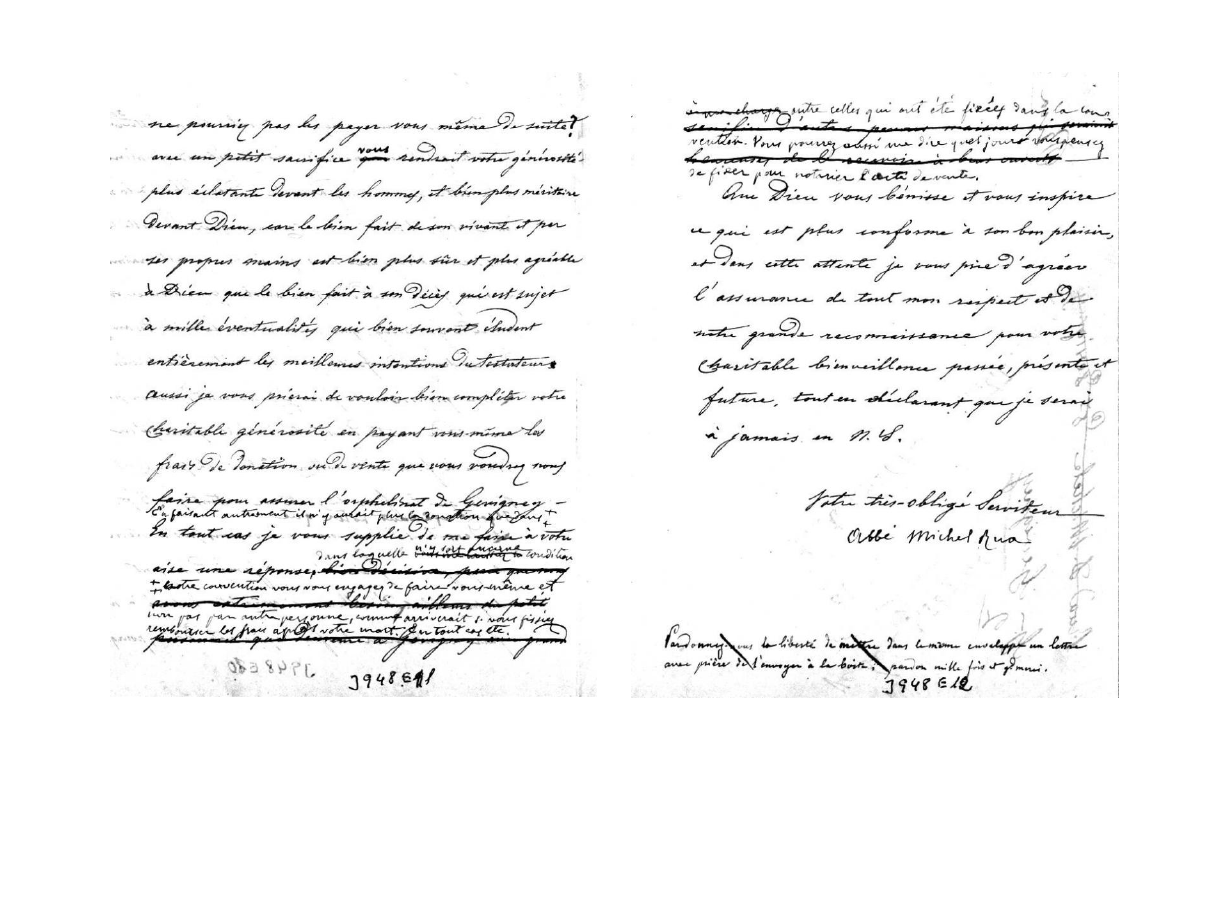 ne pourriez pas les payer vous même de suite?
avec un petit sacrifice vous rendrait votre générosité
plus éclatante devant les hommes, et bien plus méritoire
devant Dieu, car le bien fait de son vivant et par
ses propres mains est bien plus sûr et plus agréable
à Dieu que le bien fait à son décès qui est sujet
à mille éventualités qui bien souvent éludent
entièrement les meilleures intentions du testateur
aussi je vous prierai de vouloir bien compléter votre
charitable générosité en payant vous-même les
frais de donation ou de vente que vous voudrez nous
faire pour assurer l'orphelinat de Gevigney –
En faisant autrement il n'y aurait plus la donation
En tout cas je vous supplie de me faire à votre
dans laquelle condition
aise une réponse,
+ notre convention vous vous engagez de faire vous-même et
non pas par autre personne, comme arriverait si vous fissiez
rembourser les frais après votre mort. En tout cas etc.
J948E11
outre celles qui ont été fixées dans la con-
vention. Vous pourrez aussi me dire quel jour vous pensez
de fixer pour notarier l'acte de vente.
Que Dieu vous bénisse et vous inspire
ce qui est plus conforme à son bon plaisir,
et dans cette attente je vous prie d'agréer
l'assurance de tout mon respect et de
notre grande reconnaissance pour votre
charitable bienveillance passée, présente et
future, tout en déclarant que je serai
à jamais en N. S.
Votre très-obligé Serviteur
Abbé Michel Rua
Pardonnez-nous la liberté de mettre dans le même enveloppe un lettre
avec prière de l'envoyer à la boîte; pardon mille fois et merci.
J948E12